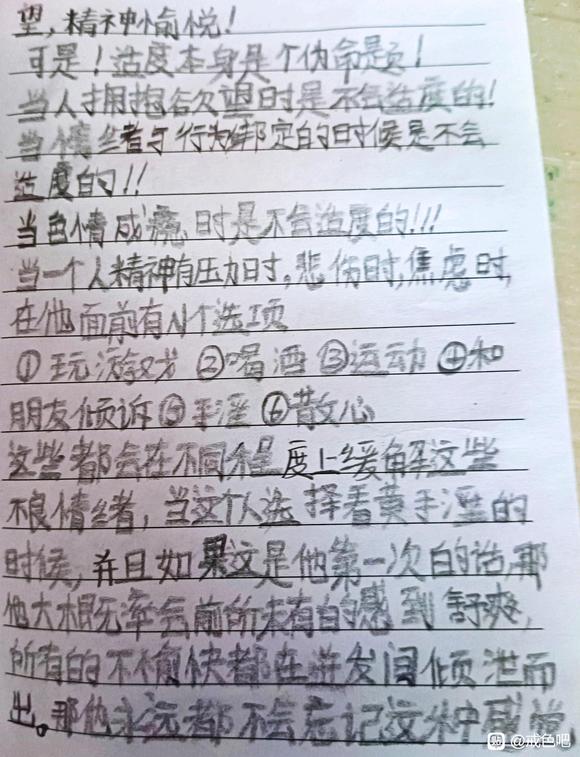 望,精神愉悦!
可是!适度本身是个伪命题!
当人拥抱各欠退时是不会适度的!
当情绪与行为绑定的时候是不会
适度的!!
当色情成瘾时是不会适度的!!!
当一个人精神有压力时,悲伤时,焦虑时,
在他面前有N个选项
①玩游戏 ②喝酒 ③运动 ④和
朋友倾诉⑤手淫 ⑥散心
这些都会在不同程度上缓解这些
不良情绪,当这个人选择看黄手淫的
时候,并且如果这是他第一次的话,那
他大概率会前所未有的感到舒爽,
所有的不愉快都在迸发间倾泄而
出。那他永远都不会忘记这种感觉
@戒色吧